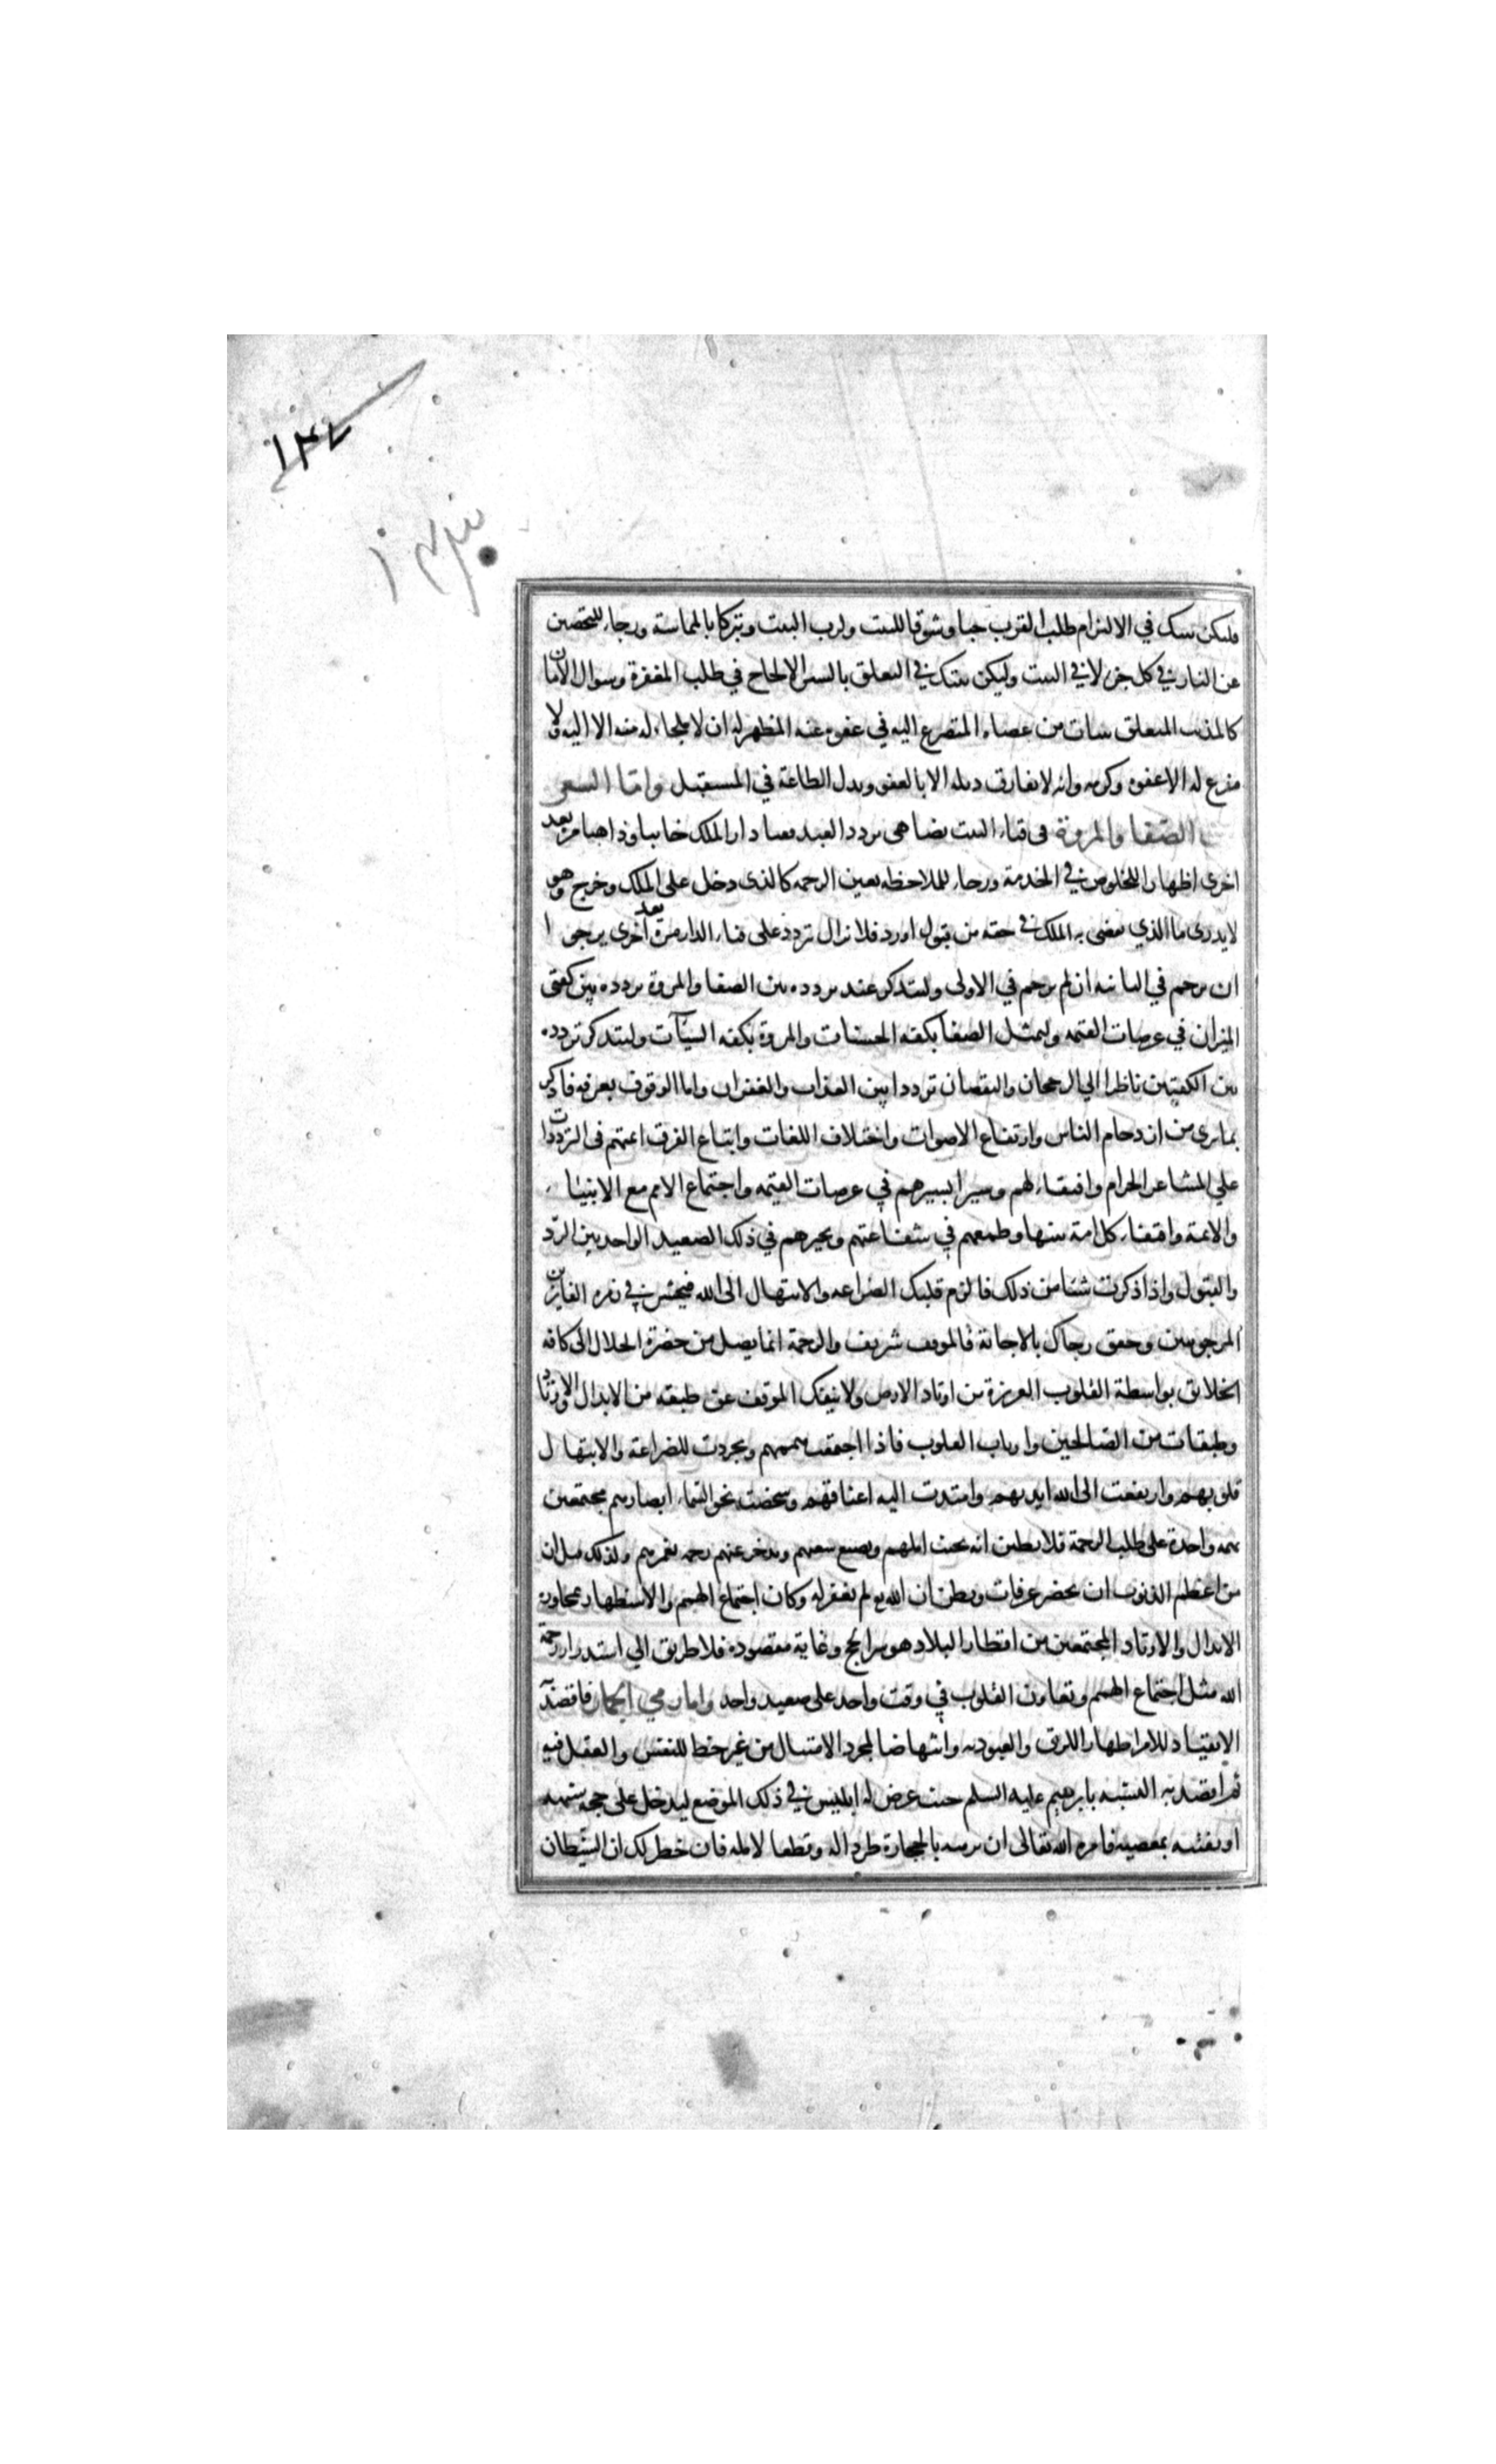 ١٣٧
١٣٠
فليكن نيتك في الالتزام طلب القرب حبا وشوقا للبيت ولرب البيت وتبركا بالمماسة ورجاء للتحصين
عن النار في كل جزء لا في البيت وليكن نيتك في التعلق بالستر الالحاح في طلب المغفرة وسوال الامان
كالمذنب المتعلق بثياب من عصاه المتضرع اليه في عفوه عنه المظهر له ان لا ملجاء له منه الا اليه ولا
مفزع له الا عفوه وكرمه وانه لا يفارق ذيله الا بالعفو وبذل الطاعة في المستقبل واما السعي
بين الصفا والمروة في فناء البيت يضاهي تردد العبد بفناء دار الملك جائيا وذاهبا مرة بعد
اخرى اظهارا للخلوص في الخدمة ورجاء للملاحظه بعين الرحمه كالذى دخل على الملك وخرج وهو
لا يدرى ما الذي يقضى به الملك في حقه من قبول او رد فلا تزال تردد على فناء الدار مرة بعد اخرى يرجى ا
ان يرحم في الثانيه ان لم يرحم في الاولى وليتذكر عند تردده بين الصفا والمروة تردده بين كفتى
الميزان في عرصات القيمه وليمثل الصفا بكفه الحسنات والمروة بكفه السيئآت وليتذكر تردده
بين الكفتين ناظرا الي الرجحان والنقصان ترددا بين العذاب والغفران واما الوقوف بعرفه فاذكر
بما ترى من ازدحام الناس وارتفاع الاصوات واختلاف اللغات واتباع الفرق ائمتهم في الترددات
علي المشاعر الحرام واقتفاء لهم وسيرا بسيرهم في عرصات القيمه واجتماع الامم مع الانبياء
والائمة واقتفاء كل امة نبيها وطمعهم في شفاعتهم وتحيرهم في ذلك الصعيد الواحد بين الرد
والقبول واذا ذكرت شيئا من ذلك فالزم قلبك الضراعه والابتهال الى الله فيحشر في زمره الفايزين
المرحومين وحقق رجاك بالاجابة فالموقف شريف والرحمة انما يصل من حضرة الجلال الى كافه
الخلائق بواسطة القلوب العزيزة من اوتاد الارض ولا ينفك الموقف عن طبقه من الابدال والاوتاد
وطبقات من الصالحين وارباب القلوب فاذا اجتمعت هممهم وتجردت للضراعة والابتهال
قلوبهم وارتفعت الى الله ايديهم وامتدت اليه اعناقهم وشخصت نحو السماء ابصارهم مجتمعين
بهمه واحدة على طلب الرحمة فلا يظنن انه يخيب املهم ويضيع سعيهم ويدخر عنهم رحمه تغمرهم ولذلك قيل ان
من اعظم الذنوب ان يحضر عرفات ويظن ان الله تع لم يغفر له وكان اجتماع الهمم والاستظهار بمجاورة
الابدال والاوتاد المجتمعين من اقطار البلاد هو سر الحج وغاية مقصوده فلا طريق الي استدرار رحمة
الله مثل اجتماع الهمم وتعاون القلوب في وقت واحد على صعيد واحد واما رمي الجمار فاقصد
الانقياد للامر اظهارا للرق والعبوديه وانتهاضا لمجرد الامتثال من غير حظ للنفس والعقل فيه
ثم اقصد به التشبه بابرهيم عليه السلم حيث عرض له ابليس في ذلك الموضع ليدخل على حجه شبهه
او يفتنه بمعصيه فامره الله تعالى ان يرميه بالحجارة طردا له وقطعا لامله فان خطر لك ان الشيطان